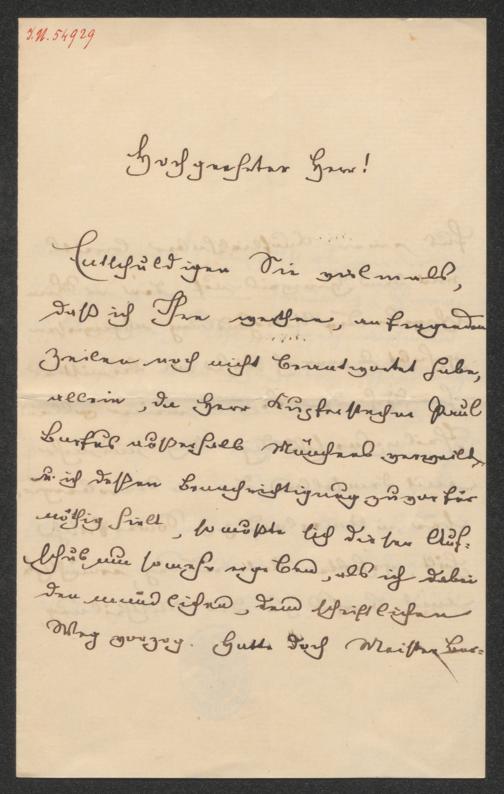 I.N. 54929
Hochgeehrter Herr!
Entschuldigen Sie vielmals,
daß ich Ihre werthen, anfragenden
Zeilen noch nicht beantwortet habe,
allein, da Herr Kupferstecher Paul
Barfus außerhalb Münchens verweilt
u ich deßen Benachrichtigung zuvor für
nöthig hielt, so mußte sich dieser Auf-
schub um so mehr ergeben, als ich dabei
den mündlichen, dem schriftlichen
Weg vorzog. Hatte doch Meister Bar-